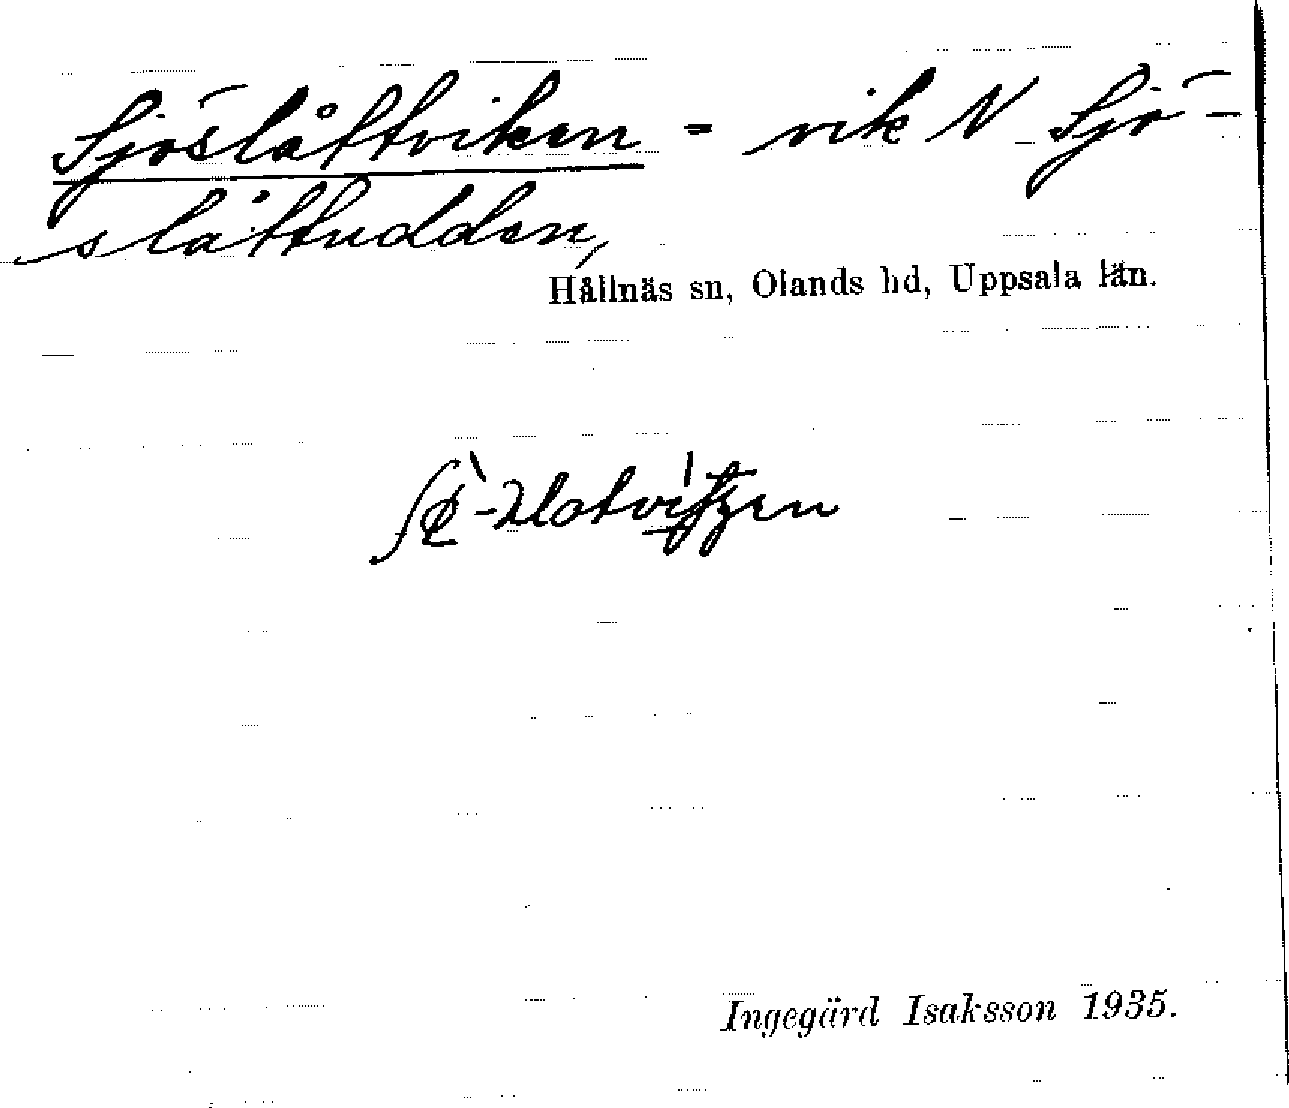 Sjöslåttviken - vik N Sjö-
slåttudden,
Hållnäs sn, Olands hd, Uppsala län.
Ingegärd Isaksson 1935.